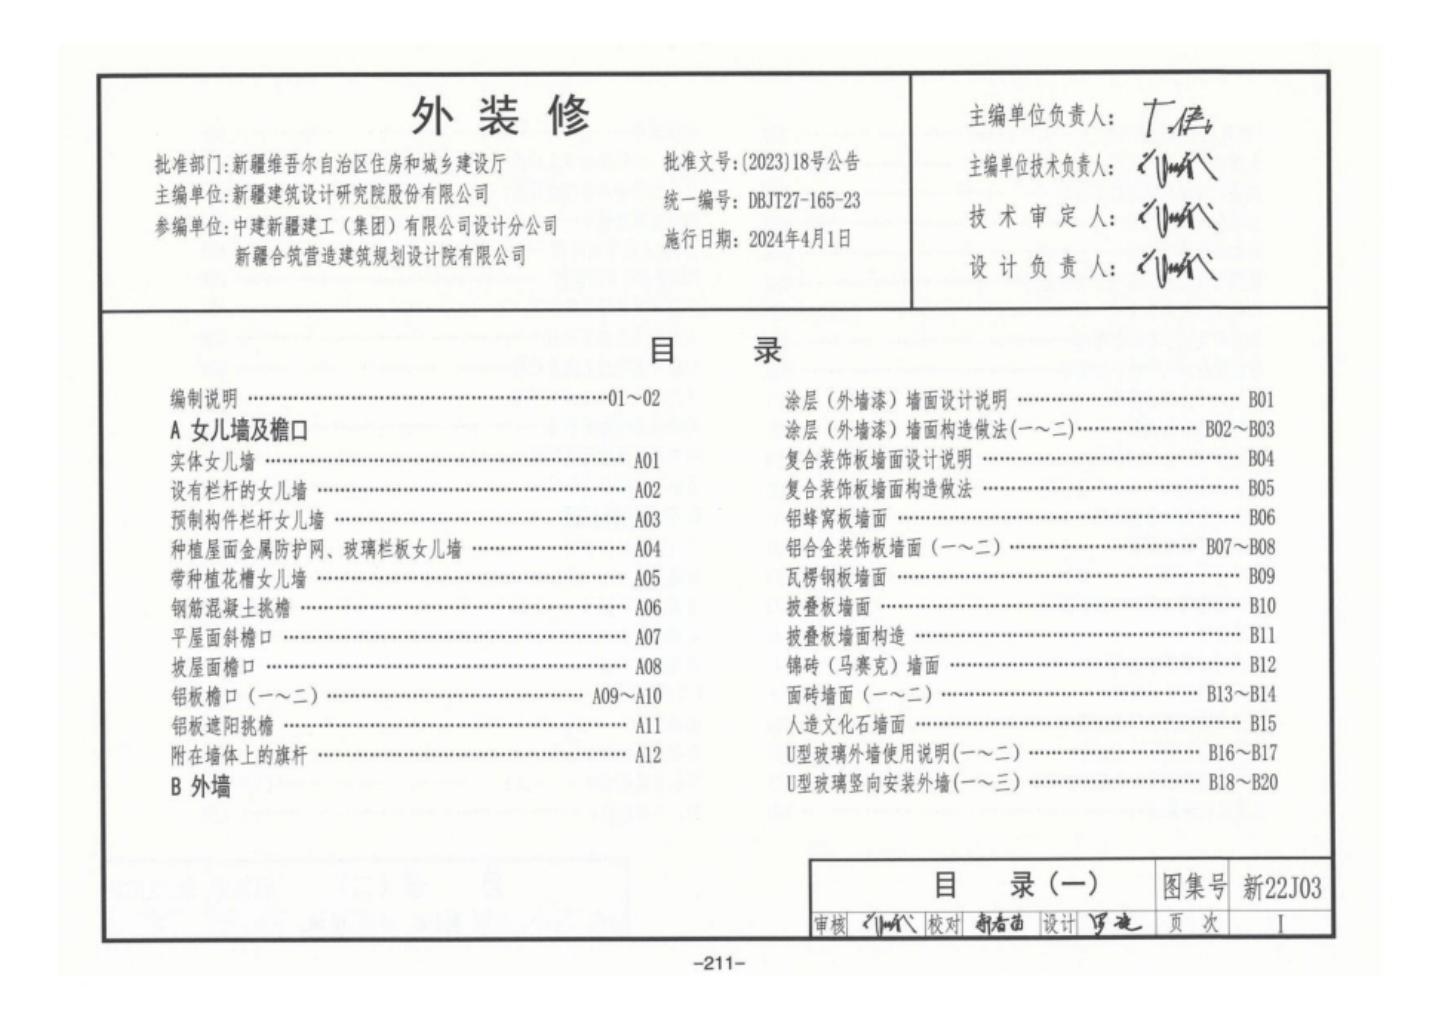 外装修
批准部门:新疆维吾尔自治区住房和城乡建设厅
主编单位:新疆建筑设计研究院股份有限公司
参编单位:中建新疆建工（集团）有限公司设计分公司
新疆合筑营造建筑规划设计院有限公司
批准文号:(2023)18号公告
统一编号: DBJT27-165-23
施行日期: 2024年4月1日
主编单位负责人:
主编单位技术负责人:
技术审定人:
设计负责人:
目 录
编制说明 ………… 01～02
A 女儿墙及檐口
实体女儿墙 ………… A01
设有栏杆的女儿墙 ………… A02
预制构件栏杆女儿墙 ………… A03
种植屋面金属防护网、玻璃栏板女儿墙 ………… A04
带种植花槽女儿墙 ………… A05
钢筋混凝土挑檐 ………… A06
平屋面斜檐口 ………… A07
坡屋面檐口 ………… A08
铝板檐口（一～二）………… A09～A10
铝板遮阳挑檐 ………… A11
附在墙体上的旗杆 ………… A12
B 外墙
涂层（外墙漆）墙面设计说明 ………… B01
涂层（外墙漆）墙面构造做法(一～二)………… B02～B03
复合装饰板墙面设计说明 ………… B04
复合装饰板墙面构造做法 ………… B05
铝蜂窝板墙面 ………… B06
铝合金装饰板墙面（一～二）………… B07～B08
瓦楞钢板墙面 ………… B09
披叠板墙面 ………… B10
披叠板墙面构造 ………… B11
锦砖（马赛克）墙面 ………… B12
面砖墙面（一～二）………… B13～B14
人造文化石墙面 ………… B15
U型玻璃外墙使用说明(一～二) ………… B16～B17
U型玻璃竖向安装外墙(一～三) ………… B18～B20
目 录(一)
图集号 新22J03
审核 校对 设计 页次 I
-211-